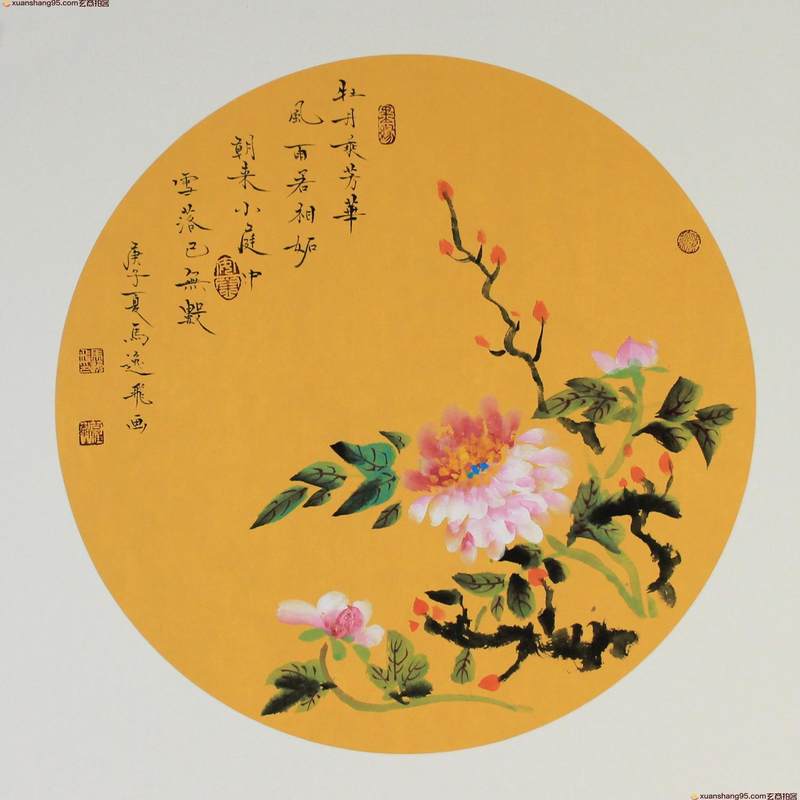 xuanshang95.com玄商拍客
牡丹乘芳華
風雨若相妬
朝来小庭中
雪落已無數
庚子夏馬逸飛画
xuanshang95.com玄商拍客